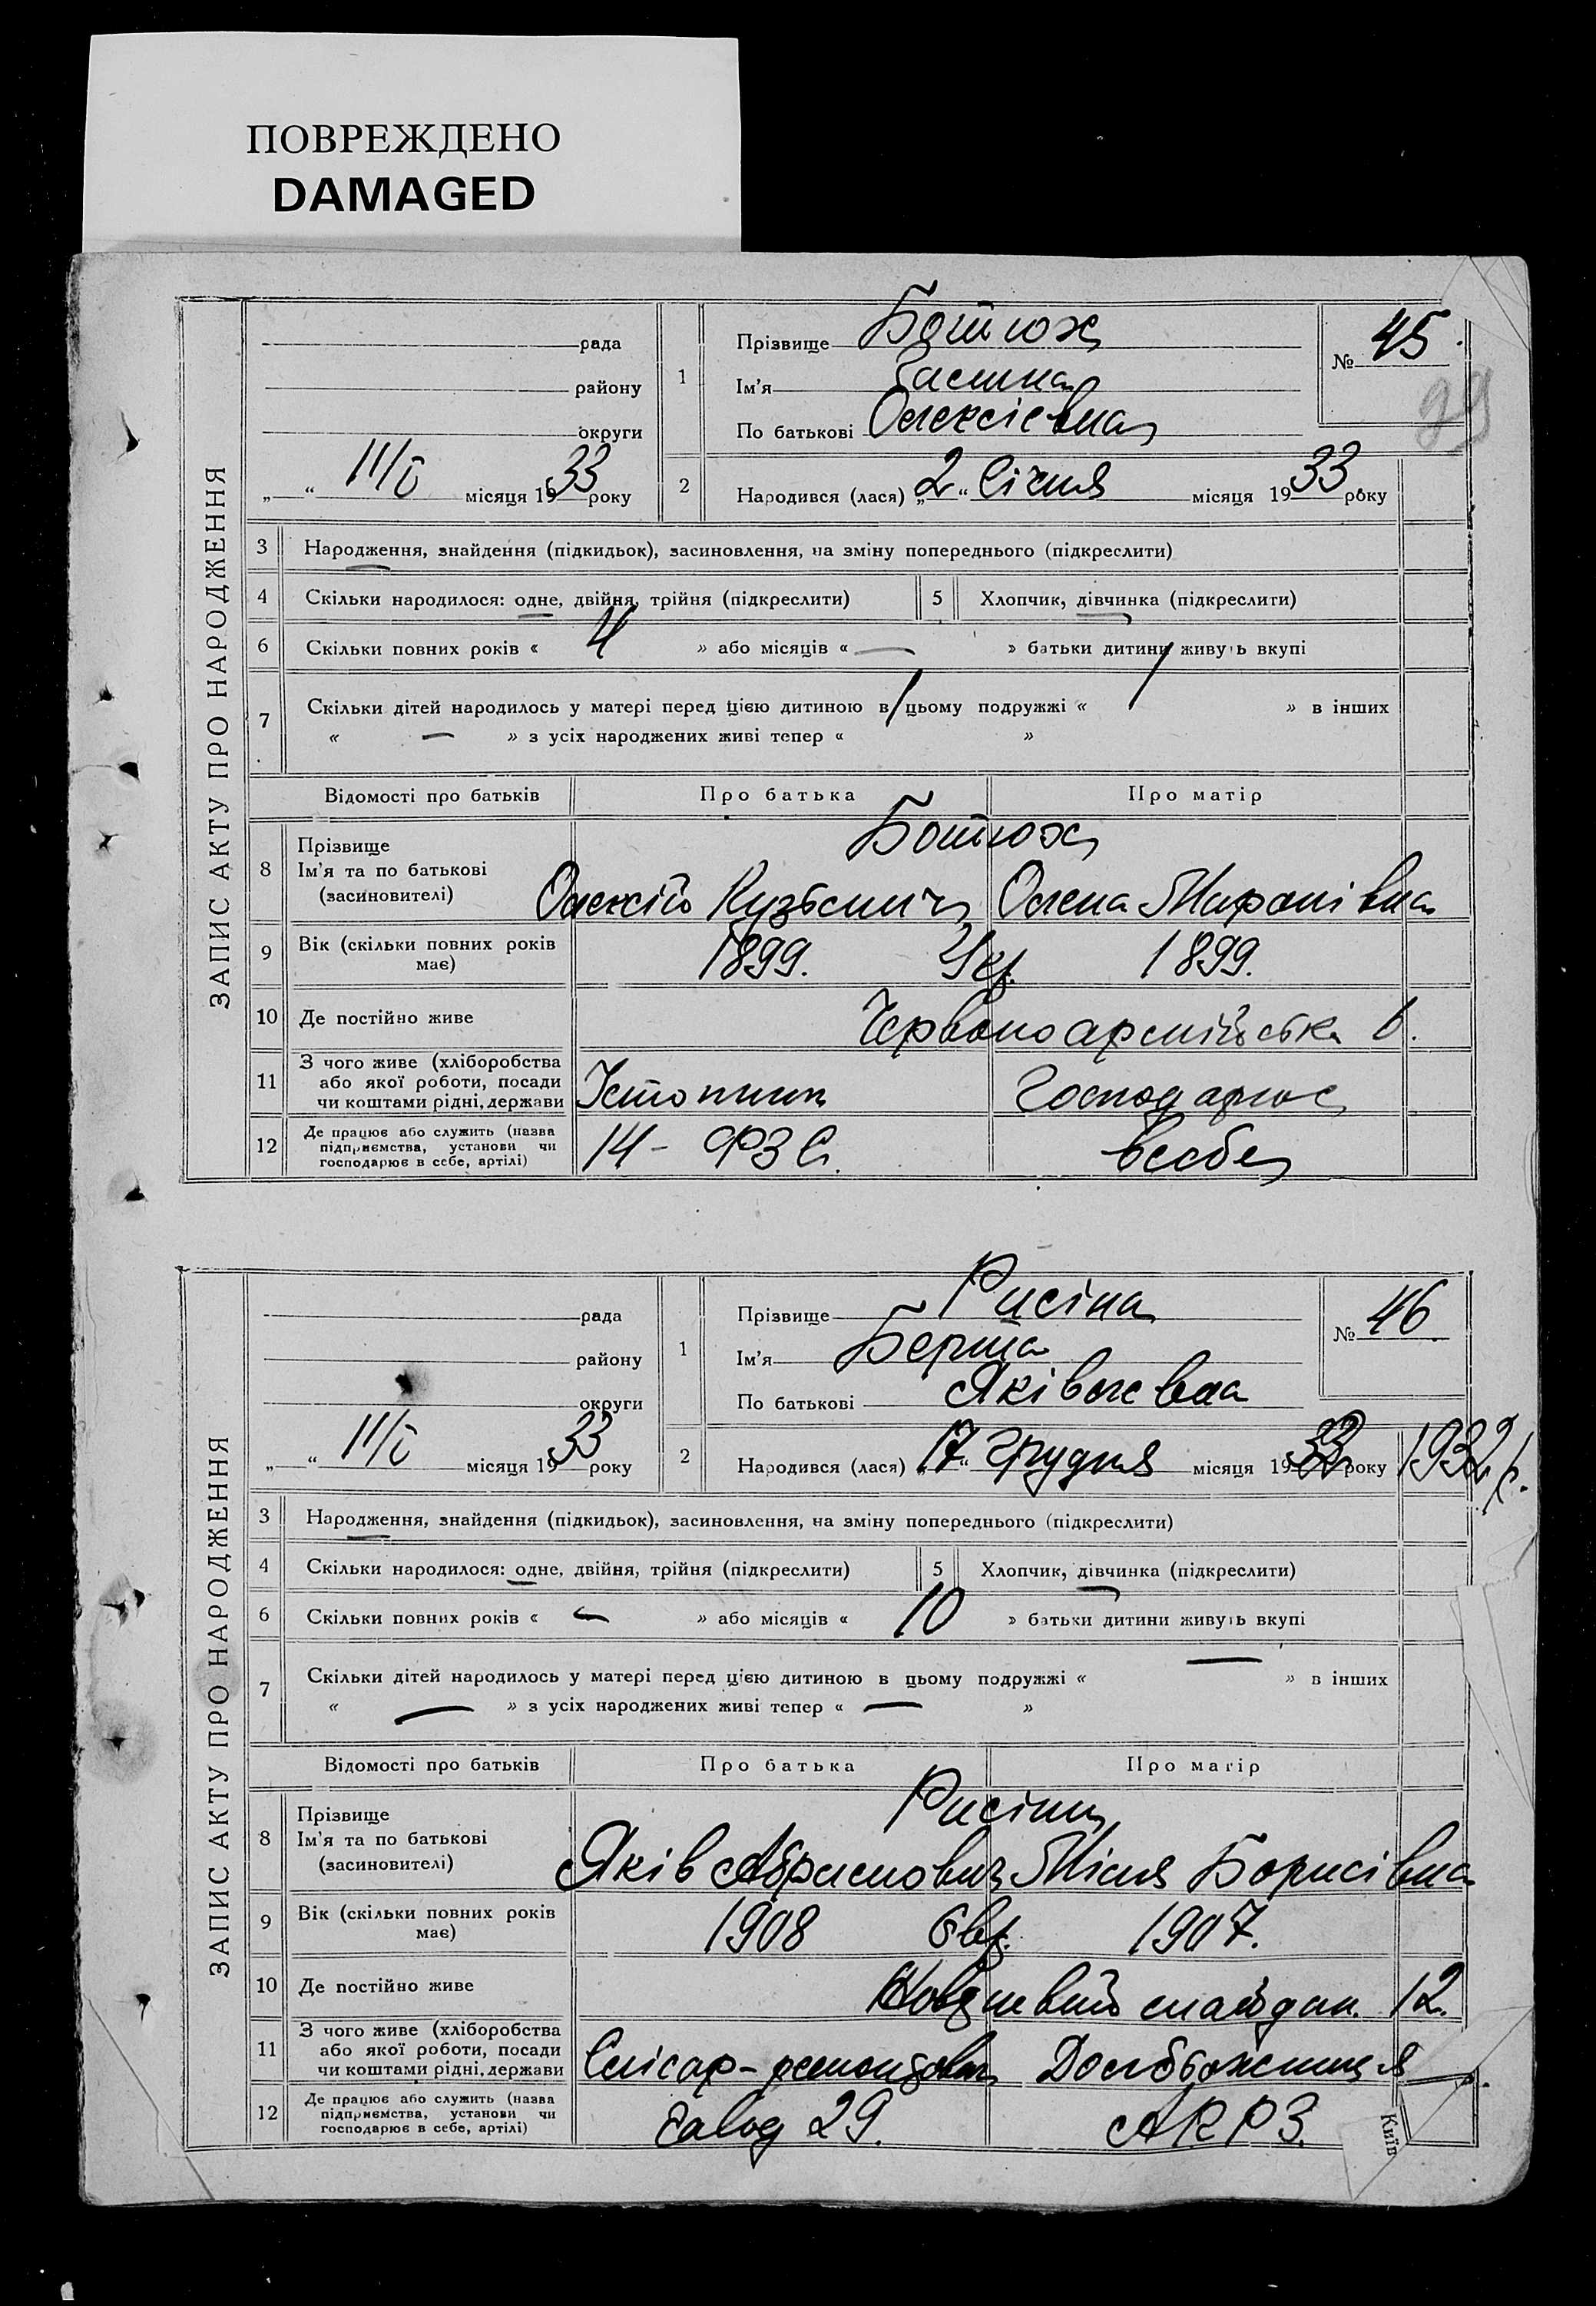 ПОВРЕЖДЕНО
DAMAGED
ЗАПИС АКТУ ПРО НАРОДЖЕННЯ
рада
району
округи
„ “ 11/I місяця 1933 року
1
Прізвище
Ім'я
По батькові Олексієвна
№ 45.
99
2
Народився (лася) „2“ Січня місяця 1933 року
3 Народження, знайдення (підкидьок), засиновлення, на зміну попереднього (підкреслити)
4 Скільки народилося: одне, двійня, трійня (підкреслити) 5 Хлопчик, дівчинка (підкреслити)
6 Скільки повних років « 4 » або місяців « — » батьки дитини живуть вкупі
7 Скільки дітей народилось у матері перед цією дитиною в цьому подружжі « 1 » в інших
« — » з усіх народжених живі тепер « 1 »
Відомості про батьків Про батька Про матір
8 Прізвище
Ім'я та по батькові
(засиновителі)
Олексій Кузьмич Олена Миронівна
9 Вік (скільки повних років має) 1899. Укр. 1899.
10 Де постійно живе Червоноармійська 6.
11 З чого живе (хліборобства або якої роботи, посади чи коштами рідні, держави Істопник Господарює
12 Де працює або служить (назва підприємства, установи чи господарює в себе, артілі) 14 - ФЗС. всебе
ЗАПИС АКТУ ПРО НАРОДЖЕННЯ
рада
району
округи
„ “ 11/I місяця 1933 року
1
Прізвище Рисіна
Ім'я Берта
По батькові Яківлевна
№ 46
2
Народився (лася) „17“ Грудня місяця 19 року 1932 р.
3 Народження, знайдення (підкидьок), засиновлення, на зміну попереднього (підкреслити)
4 Скільки народилося: одне, двійня, трійня (підкреслити) 5 Хлопчик, дівчинка (підкреслити)
6 Скільки повних років « — » або місяців « 10 » батьки дитини живуть вкупі
7 Скільки дітей народилось у матері перед цією дитиною в цьому подружжі « — » в інших
« — » з усіх народжених живі тепер « — »
Відомості про батьків Про батька Про матір
8 Прізвище Рисіни
Ім'я та по батькові
(засиновителі)
Яків Абрамович Міля Борисівна
9 Вік (скільки повних років має) 1908 Євр. 1907.
10 Де постійно живе майдан. 12.
11 З чого живе (хліборобства або якої роботи, посади чи коштами рідні, держави Слісар-
12 Де працює або служить (назва підприємства, установи чи господарює в себе, артілі) Завод 29. АКРЗ.
Київ